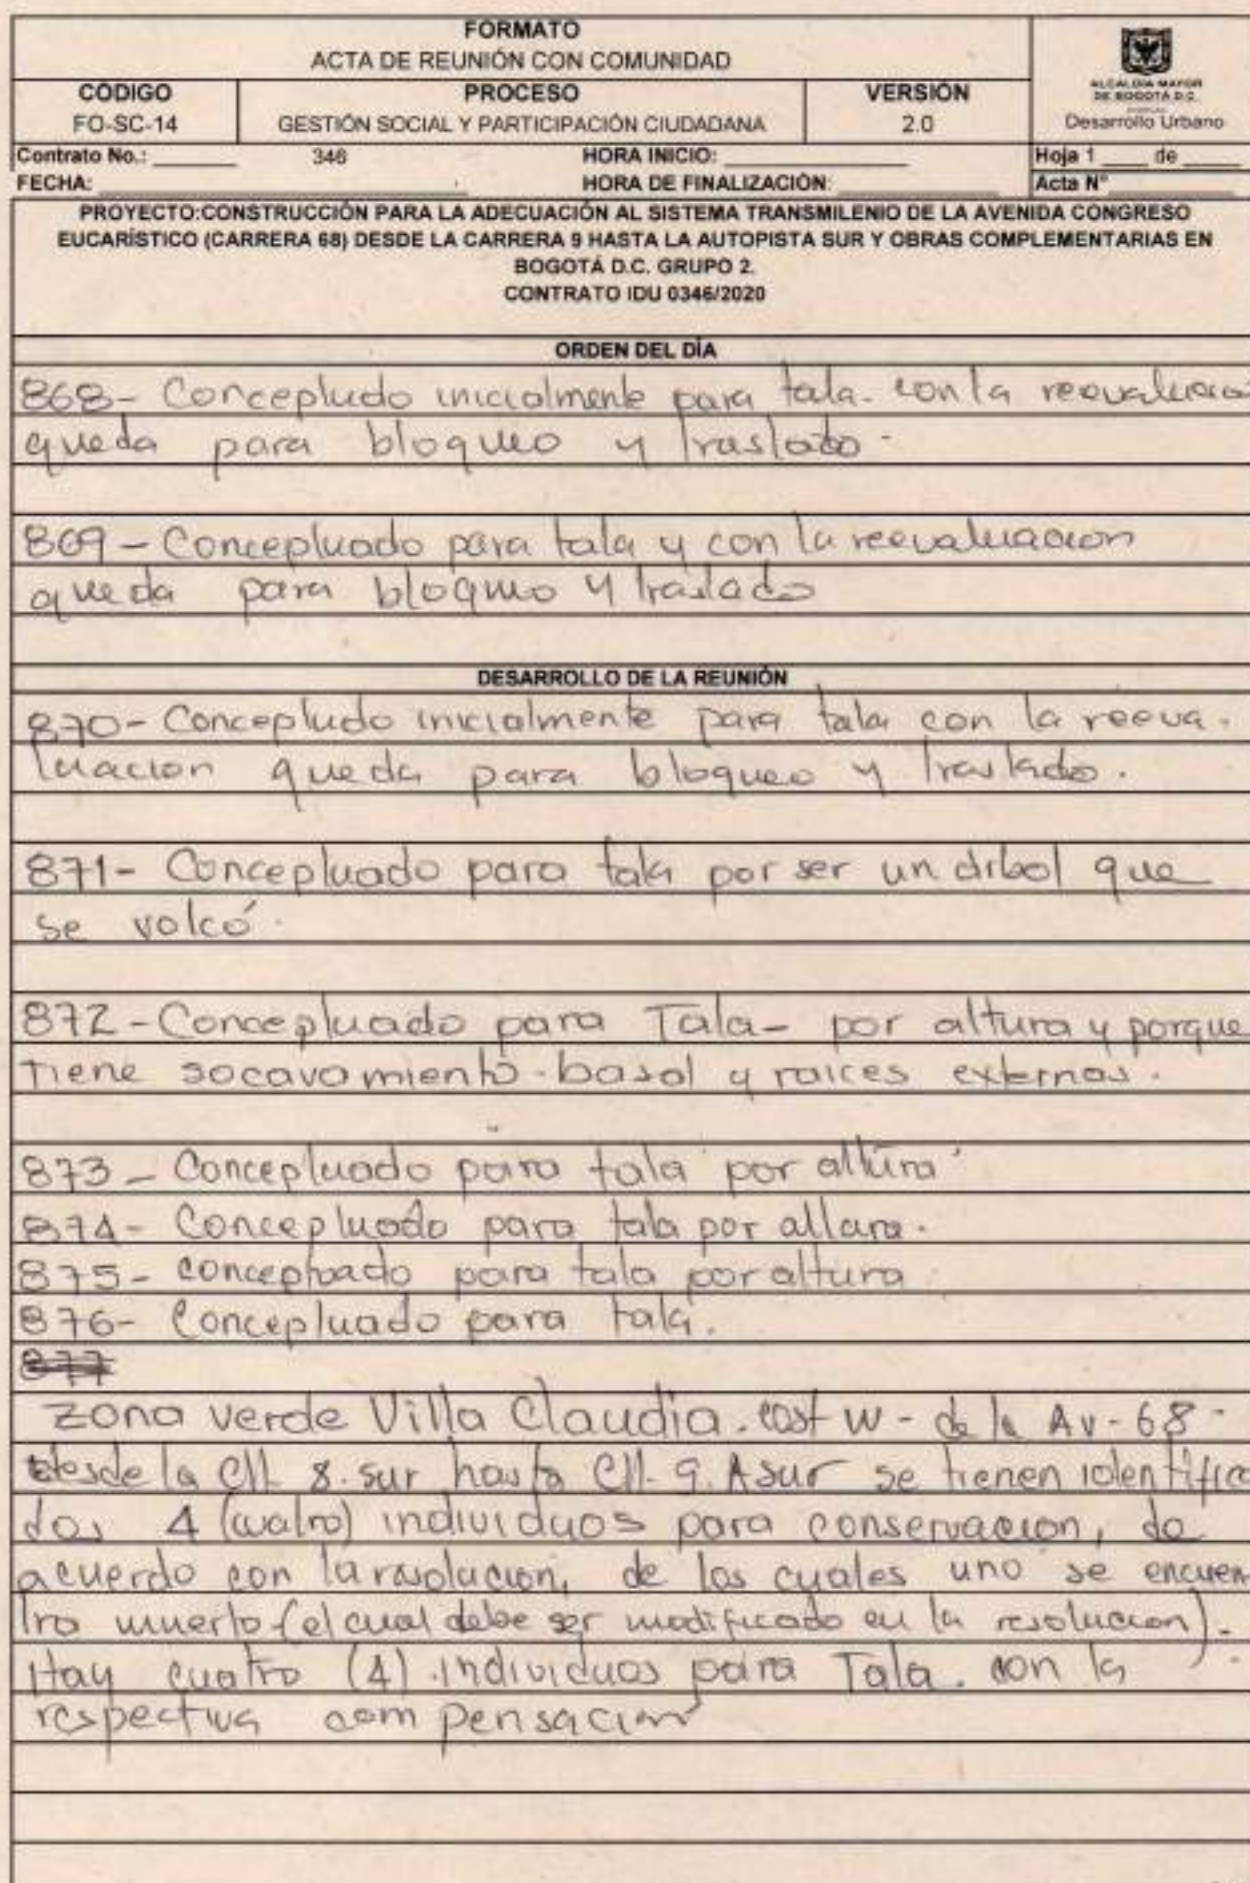 FORMATO
ACTA DE REUNIÓN CON COMUNIDAD
CÓDIGO PROCESO VERSIÓN
FO-SC-14 GESTIÓN SOCIAL Y PARTICIPACIÓN CIUDADANA 2.0
ALCALDÍA MAYOR
DE BOGOTÁ D.C.
Desarrollo Urbano
Contrato No.: 346 HORA INICIO: Hoja 1 de
FECHA: HORA DE FINALIZACIÓN: Acta N°
PROYECTO:CONSTRUCCIÓN PARA LA ADECUACIÓN AL SISTEMA TRANSMILENIO DE LA AVENIDA CONGRESO
EUCARÍSTICO (CARRERA 68) DESDE LA CARRERA 9 HASTA LA AUTOPISTA SUR Y OBRAS COMPLEMENTARIAS EN
BOGOTÁ D.C. GRUPO 2.
CONTRATO IDU 0346/2020
ORDEN DEL DÍA
868- Conceptudo inicialmente para tala. con la reevaluacio
queda para bloqueo y traslado-
869- Conceptuado para tala y con la reevaluacion
queda para bloqueo y traslado
DESARROLLO DE LA REUNIÓN
870- Conceptudo inicialmente para tala con la reeva-
luacion queda para bloqueo y traslado.
871- Conceptuado para tala por ser un árbol que
se volcó.
872- Conceptuado para Tala- por altura y porque
tiene socavamiento basal y raices externas.
873- Conceptuado para tala por altura
874- Conceptuado para tala por altura.
875- conceptuado para tala por altura
876- Conceptuado para tala.
877
zona verde Villa Claudia. cost W - de la Av-68-
desde la Cll 8. sur hasta Cll- 9. A sur se tienen identifica
dos 4 (cuatro) individuos para conservacion, de
acuerdo con la resolucion, de los cuales uno se encuen
tra muerto (el cual debe ser modificado en la resolucion).
Hay cuatro (4) individuos para Tala. con la
respectiva compensacion